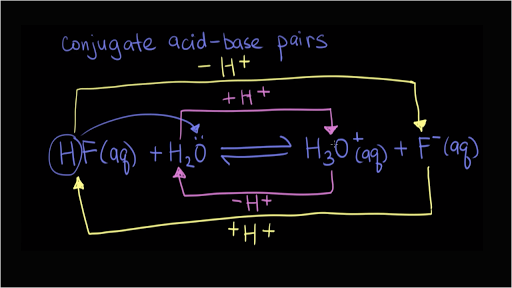 conjugate acid-base pairs
-H+
+H+
HF(aq) + H₂Ö ⇌ H₃O⁺(aq) + F⁻(aq)
-H+
+H+